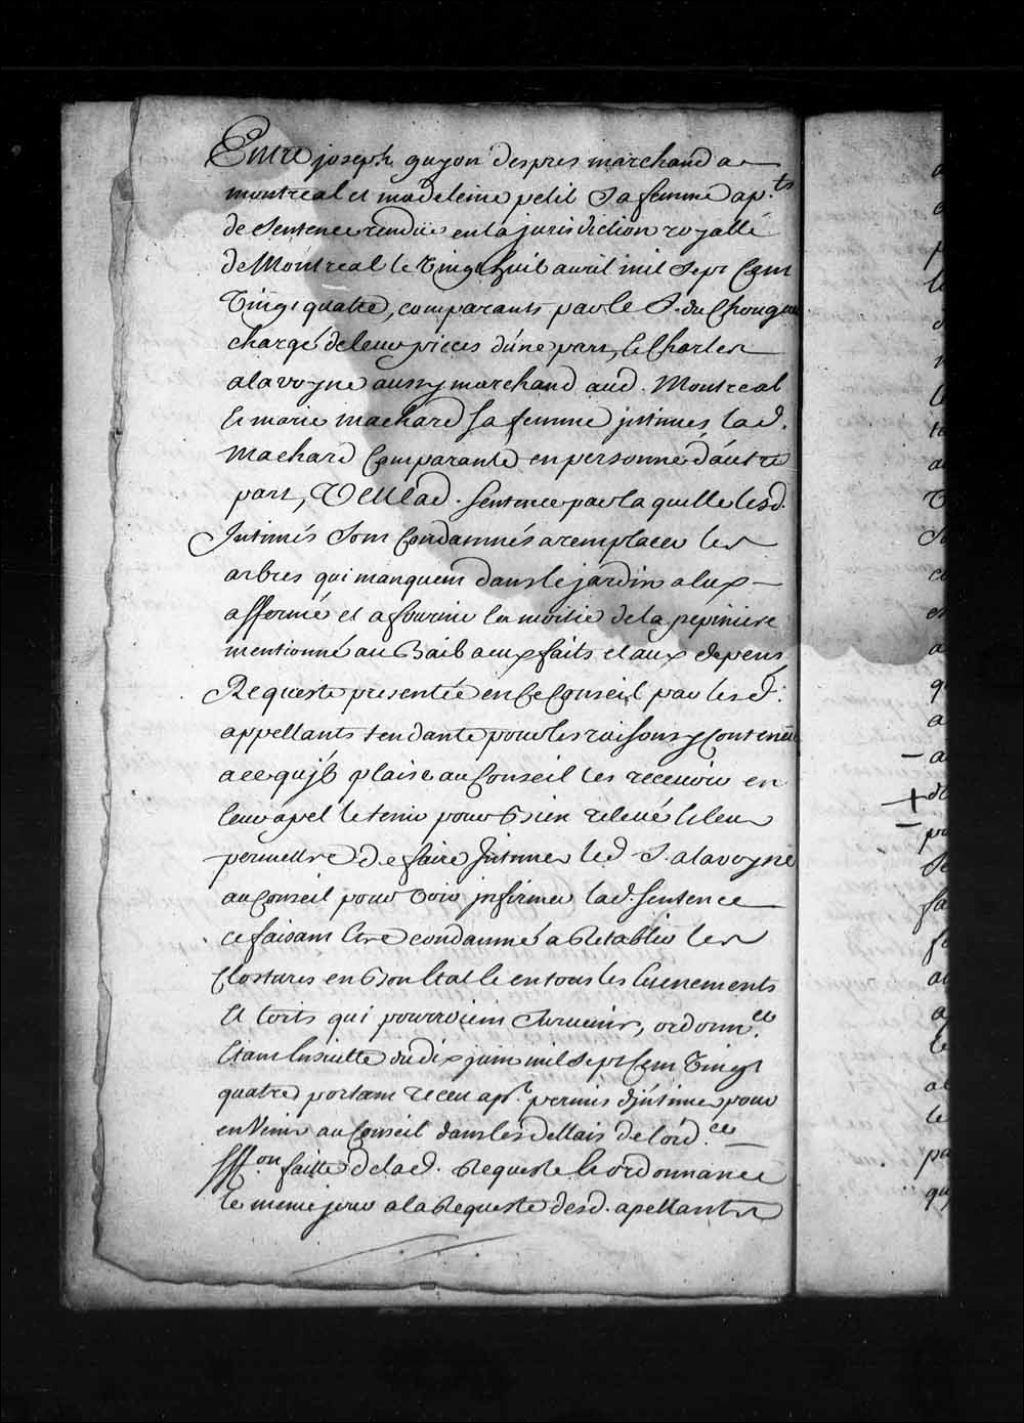 Entre joseph guyon despres marchand a
montreal et madeleine petit sa femme apts
de Sentence rendüe en la jurisdiction royalle
de Montreal le Vingt huit auril mil sept Cent
Vingt quatre, comparants par le S. du Chouquet
chargé de leur pieces d'une part, et Charles
alavoyne aussy marchand aud. Montreal
et marie machard sa femme intimés, lad.
Machard Comparante en personne d'autre
part, Veu lad. Sentence par laquelle lesd.
Intimés sont Condamnés a remplacer les
arbres qui manquent dans le jardin a eux
affermé et a fournir la moitié de la pepiniere
mentionné au Bail aux faits et aux depens,
Requeste presentée en Ce Conseil par lesd.
appellants tendante pour les raisons y Contenües
a ce qu'jl plaise au Conseil les recevoir en
leur apel le tenir pour Bien releué et leur
permettre de faire Intimer led. S. alavoyne
au Conseil pour Voir jnfirmer lad. sentence
ce faisant Etre condamné a Retablir les
Clostures en Bon Etat et en tous les Euenements
Et torts qui pourroient suruenir, ordonnce
Etant Ensuitte du dix juin mil sept Cent Vingt
quatre portant receu apt. permis d'jntimer pour
en Venir au Conseil dans les dellais de l'ord.ce
Sff.on faitte de lad. Requeste et ordonnance
le meme jour a la Requeste desd. apellants